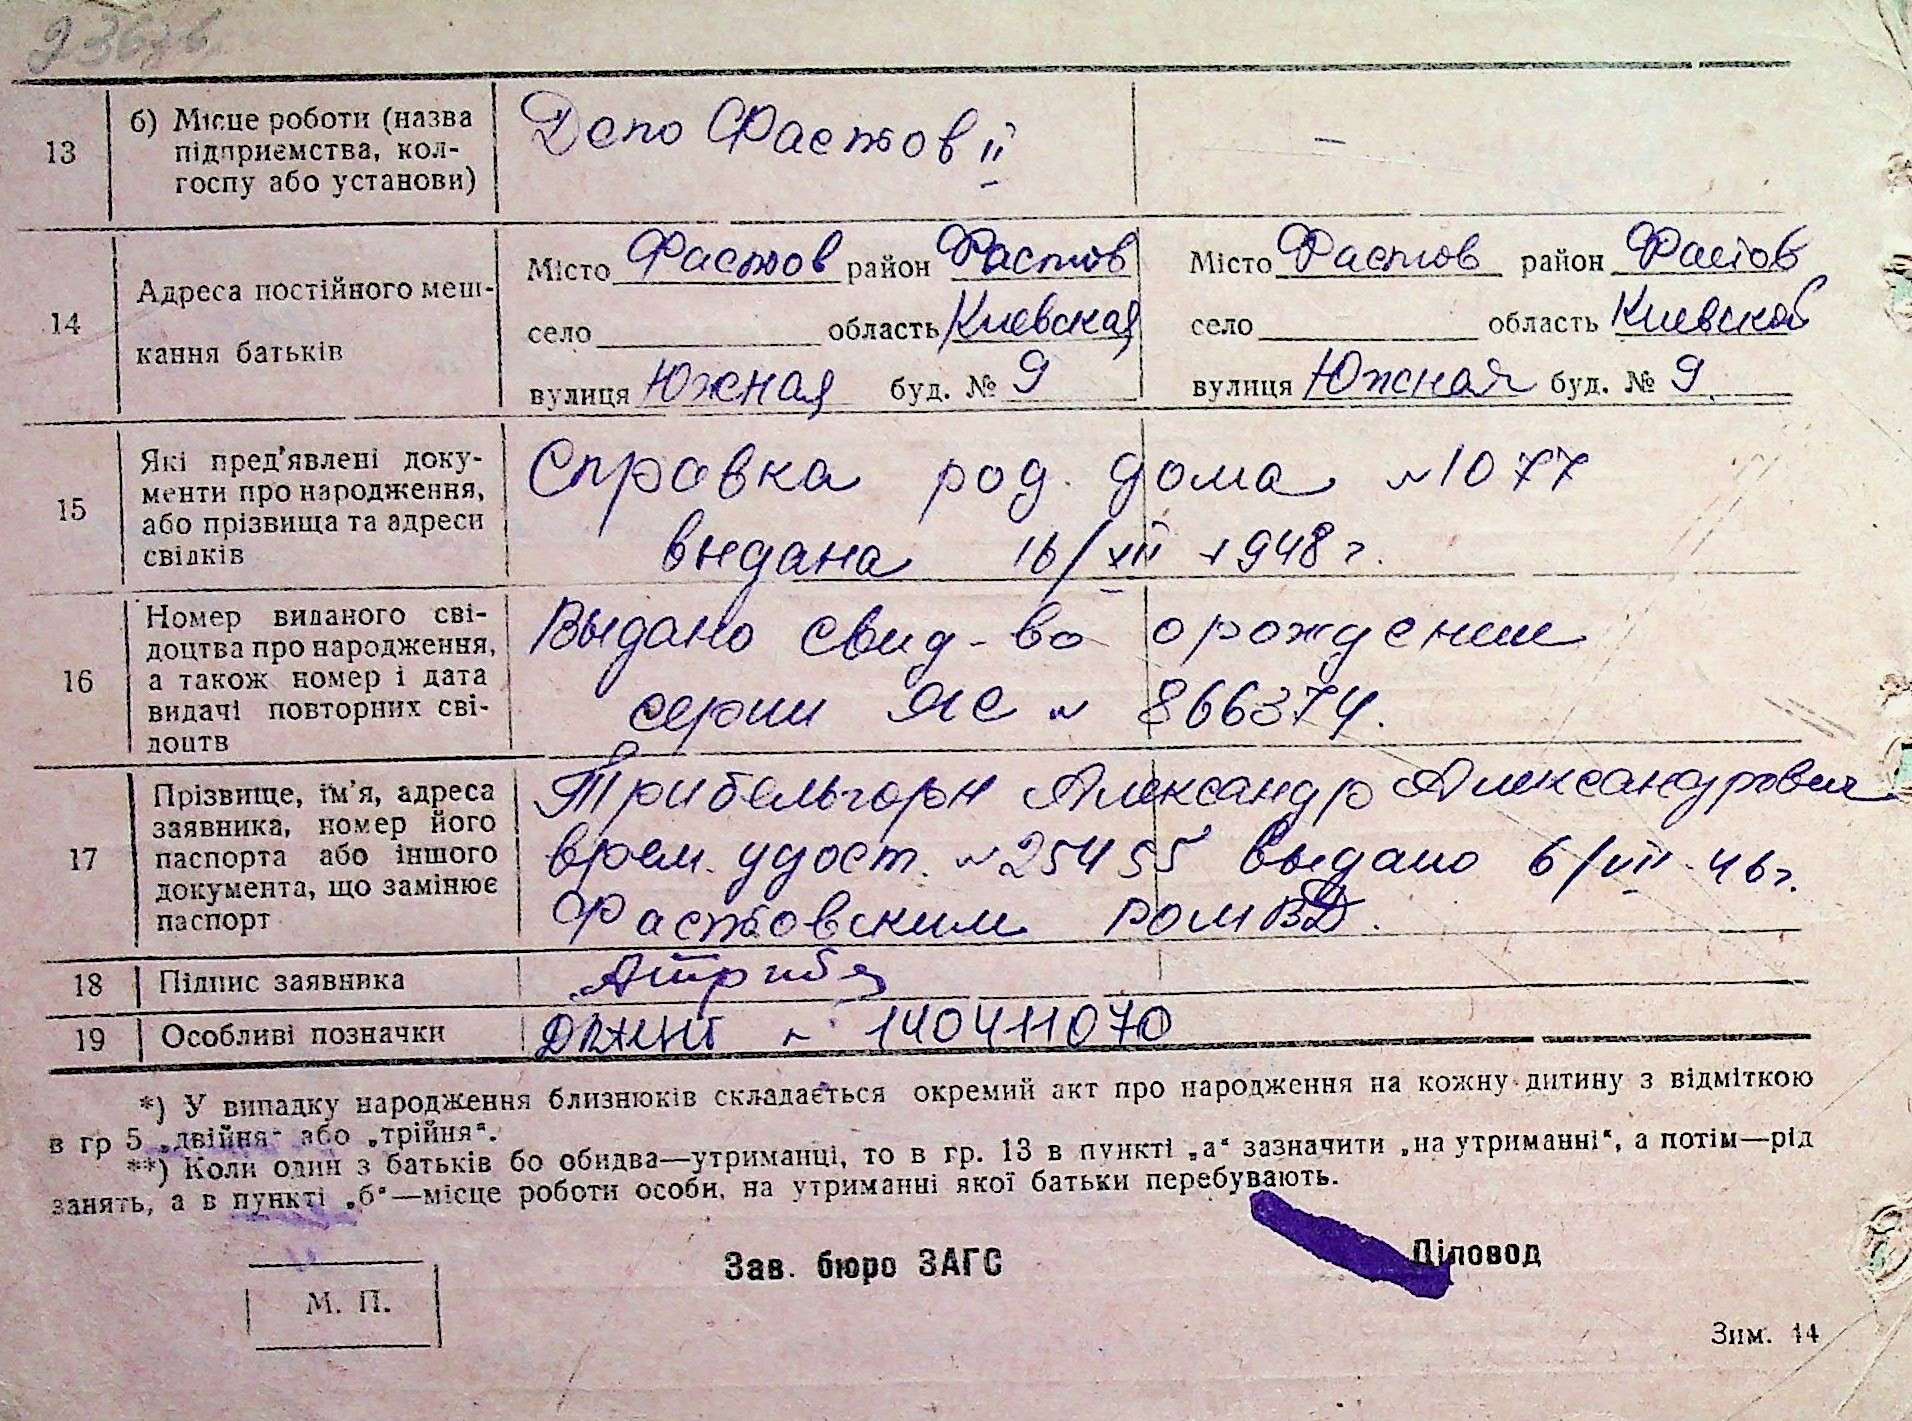 13 б) Місце роботи (назва підприємства, кол-госпу або установи) Депо Фастов II –
14 Адреса постійного меш-кання батьків
Місто Фастов район Фастов Місто Фастов район Фастов
село область Киевская село область Киевской
вулиця Южная буд. № 9 вулиця Южная буд. № 9
15 Які пред'явлені доку-
менти про народження,
або прізвища та адреси
свідків
Справка род. дома №1077
выдана 16/XII 1948 г.
16 Номер виданого сві-
доцтва про народження,
а також номер і дата
видачі повторних сві-
доцтв
Выдано свид-во о рождении
серии ЯС № 866374.
17 Прізвище, ім'я, адреса
заявника, номер його
паспорта або іншого
документа, що замінює
паспорт
Трибельгорн Александр Александрович
врем. удост. №25455 выдано 6/VII 46 г.
Фастовским РОМВД.
18 Підпис заявника
19 Особливі позначки № 140411070
*) У випадку народження близнюків складається окремий акт про народження на кожну дитину з відміткою
в гр 5 „двійня" або „трійня".
**) Коли один з батьків бо обидва—утриманці, то в гр. 13 в пункті „а" зазначити „на утриманні", а потім—рід
занять, а в пункті „б"—місце роботи особи, на утриманні якої батьки перебувають.
Зав. бюро ЗАГС Діловод
М. П.
Зим. 14